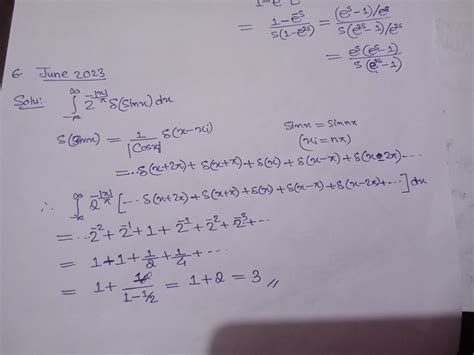 1-e
= (1-e^{-s})/(s(1-e^{-2s})) = ((e^s-1)/e^s)/(s(e^{2s}-1)/e^{2s})
= e^s(e^s-1)/(s(e^{2s}-1))
6. June 2023
Solu: ∫_{-∞}^{∞} 2^{-|x|/π} δ(sinx) dx
δ(sinx) = 1/|Cosx| δ(x-xi) sinx = sinnπ
(xi = nπ)
= ...δ(x+2π) + δ(x+π) + δ(x) + δ(x-π) + δ(x-2π)...
∴ ∫_{-∞}^{∞} 2^{-|x|/π} [... δ(x+2π) + δ(x+π) + δ(x) + δ(x-π) + δ(x-2π) + ...] dx
= ...2^{-2} + 2^{-1} + 1 + 2^{-1} + 2^{-2} + 2^{-3} + ...
= 1 + 1 + 1/2 + 1/4 + ...
= 1 + 1/(1-1/2) = 1+2 = 3 //